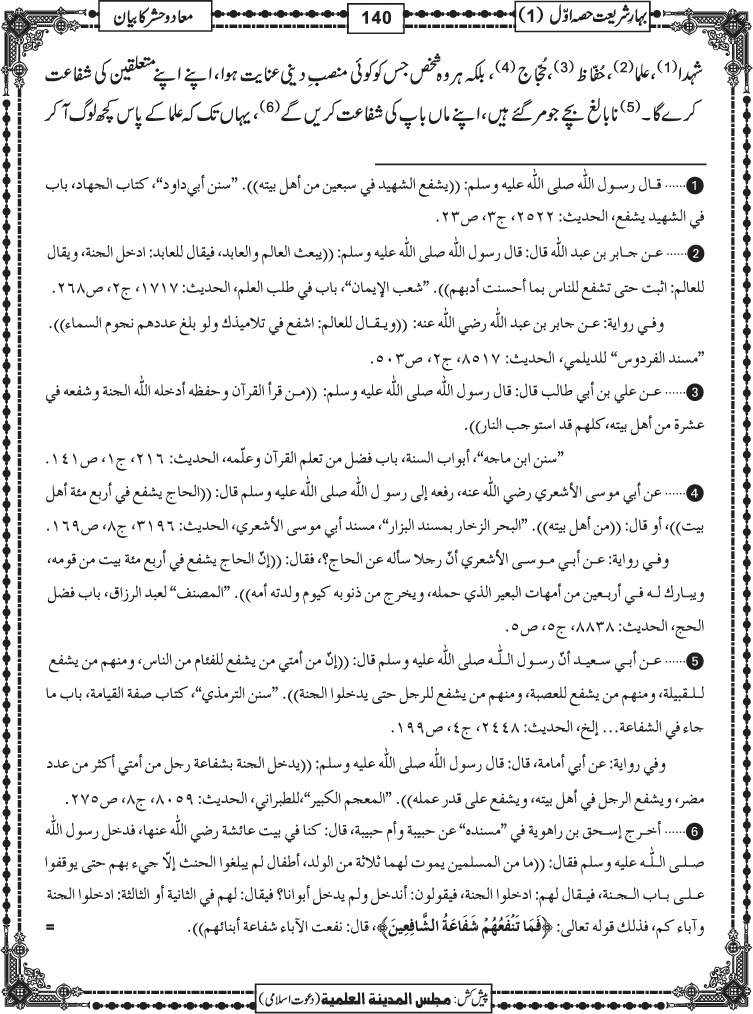 بہارِ شریعت حصہ اوّل (1)
140
معاد و حشر کا بیان
شہدا(1)، علما(2)، حُفّاظ(3)، حُجّاج(4)، بلکہ ہر وہ شخص جس کو کوئی منصبِ دینی عنایت ہوا، اپنے اپنے متعلقین کی شفاعت
کرے گا۔(5) نابالغ بچے جو مر گئے ہیں، اپنے ماں باپ کی شفاعت کریں گے(6)، یہاں تک کہ علما کے پاس کچھ لوگ آکر
1...... قـال رسـول اللّٰه صلی اللّٰه علیه وسلم: ((يشفع الشهيد في سبعين من أهل بيته)). ”سنن أبي داود“، كتاب الجهاد، باب
في الشهيد يشفع، الحديث: ٢٥٢٢، ج٣، ص٢٣.
2...... عـن جـابر بن عبد اللّٰه قال: قال رسول اللّٰه صلی اللّٰه علیه وسلم: ((يبعث العالم والعابد، فيقال للعابد: ادخل الجنة، ويقال
للعالم: اثبت حتى تشفع للناس بما أحسنت أدبهم)). ”شعب الإيمان“، باب في طلب العلم، الحديث: ١٧١٧، ج٢، ص٢٦٨.
وفـي رواية: عـن جابر بن عبد اللّٰه رضي اللّٰه عنه: ((ويـقـال للعالم: اشفع في تلاميذك ولو بلغ عددهم نجوم السماء)).
”مسند الفردوس“ للديلمي، الحديث: ٨٥١٧، ج٢، ص٥٠٣.
3...... عـن علي بن أبي طالب قال: قال رسول اللّٰه صلی اللّٰه علیه وسلم: ((مـن قرأ القرآن وحفظه أدخله اللّٰه الجنة وشفعه في
عشرة من أهل بيته، كلهم قد استوجب النار)).
”سنن ابن ماجه“، أبواب السنة، باب فضل من تعلم القرآن وعلّمه، الحديث: ٢١٦، ج١، ص١٤١.
4...... عن أبي موسى الأشعري رضي اللّٰه عنه، رفعه إلى رسو ل اللّٰه صلی اللّٰه علیه وسلم قال: ((الحاج يشفع في أربع مئة أهل
بيت))، أو قال: ((من أهل بيته)). ”البحر الزخار بمسند البزار“، مسند أبي موسى الأشعري، الحديث: ٣١٩٦، ج٨، ص١٦٩.
وفـي رواية: عـن أبـي مـوسـى الأشعري أنّ رجلا سأله عن الحاج؟، فقال: ((إنّ الحاج يشفع في أربع مئة بيت من قومه،
ويبـارك لـه فـي أربـعين من أمهات البعير الذي حمله، ويخرج من ذنوبه كيوم ولدته أمه)). ”المصنف“ لعبد الرزاق، باب فضل
الحج، الحديث: ٨٨٣٨، ج٥، ص٥.
5...... عـن أبـي سـعيـد أنّ رسـول الـلّٰـه صلی اللّٰه علیه وسلم قال: ((إنّ من أمتي من يشفع للفئام من الناس، ومنهم من يشفع
لـلـقبيلة، ومنهم من يشفع للعصبة، ومنهم من يشفع للرجل حتى يدخلوا الجنة)). ”سنن الترمذي“، كتاب صفة القيامة، باب ما
جاء في الشفاعة... إلخ، الحديث: ٢٤٤٨، ج٤، ص١٩٩.
وفي رواية: عن أبي أمامة، قال: قال رسول اللّٰه صلی اللّٰه علیه وسلم: ((يدخل الجنة بشفاعة رجل من أمتي أكثر من عدد
مضر، ويشفع الرجل في أهل بيته، ويشفع على قدر عمله)). ”المعجم الكبير“، للطبراني، الحديث: ٨٠٥٩، ج٨، ص٢٧٥.
6...... أخـرج إسـحق بن راهوية في ”مسنده“ عن حبيبة وأم حبيبة، قال: كنا في بيت عائشة رضي اللّٰه عنها، فدخل رسول اللّٰه
صلـى اللّٰـه علیه وسلم فقال: ((ما من المسلمين يموت لهما ثلاثة من الولد، أطفال لم يبلغوا الحنث إلّا جيء بهم حتى يوقفوا
عـلـى بـاب الـجـنة، فيـقـال لهم: ادخلوا الجنة، فيقولون: أندخل ولم يدخل أبوانا؟ فيقال: لهم في الثانية أو الثالثة: ادخلوا الجنة
وآباء كم، فذلك قوله تعالى: ﴿فَمَا تَنْفَعُهُمْ شَفَاعَةُ الشَّافِعِينَ﴾، قال: نفعت الآباء شفاعة أبنائهم)). =
پیش کش: مجلس المدینة العلمیة (دعوت اسلامی)